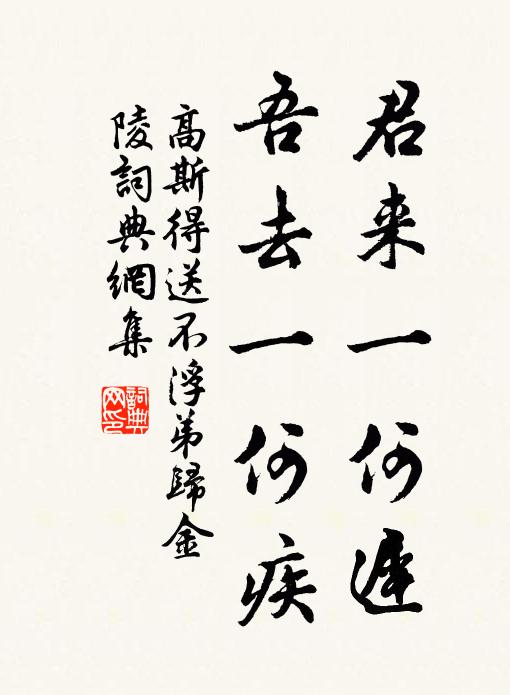 君来一何遲
吾去一何疾
高斯得送不浮弟歸金
陵詞典網集
詞典网印